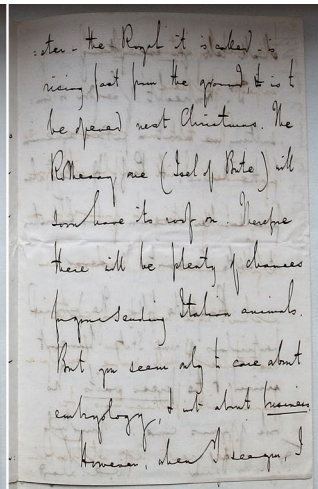 :ster - the Royal it is called - is
rising fast from the ground, & is to
be opened next Christmas. The
Rothesay one (Isel of Bute) will
soon have its roof on. Therefore
there will be plenty of chances
for your sending Italian animals.
But you seem only to care about
embryology, & not about business.
However, when I see you, I